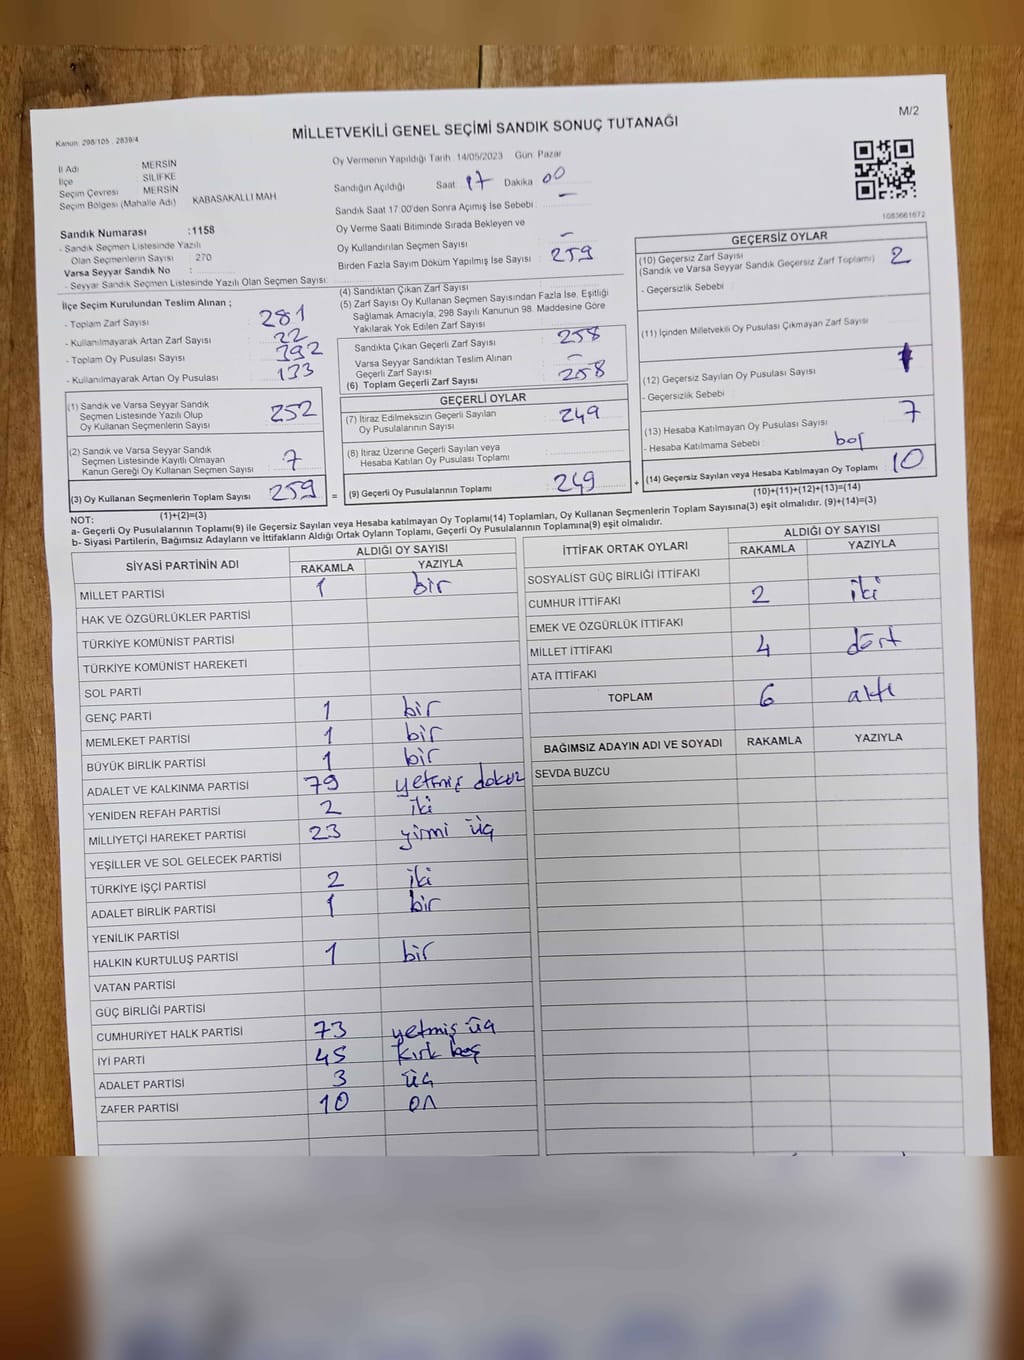 M/2
Kanun: 298/105 . 2839/4
MİLLETVEKİLİ GENEL SEÇİMİ SANDIK SONUÇ TUTANAĞI
İl Adı : MERSİN
İlçe : SİLİFKE
Seçim Çevresi : MERSİN
Seçim Bölgesi (Mahalle Adı) KABASAKALLI MAH
Sandık Numarası :1158
- Sandık Seçmen Listesinde Yazılı
Olan Seçmenlerin Sayısı : 270
Varsa Seyyar Sandık No :
- Seyyar Sandık Seçmen Listesinde Yazılı Olan Seçmen Sayısı:
Oy Vermenin Yapıldığı Tarih 14/05/2023 Gün: Pazar
Sandığın Açıldığı Saat: 17 Dakika: 00
Sandık Saat 17.00'den Sonra Açımış İse Sebebi : –
Oy Verme Saati Bitiminde Sırada Bekleyen ve
Oy Kullandırılan Seçmen Sayısı : –
Birden Fazla Sayım Döküm Yapılmış İse Sayısı : 259
1083661672
İlçe Seçim Kurulundan Teslim Alınan ;
- Toplam Zarf Sayısı : 281
- Kullanılmayarak Artan Zarf Sayısı : 22
- Toplam Oy Pusulası Sayısı : 392
- Kullanılmayarak Artan Oy Pusulası : 133
(1) Sandık ve Varsa Seyyar Sandık
Seçmen Listesinde Yazılı Olup
Oy Kullanan Seçmenlerin Sayısı : 252
(2) Sandık ve Varsa Seyyar Sandık
Seçmen Listesinde Kayıtlı Olmayan
Kanun Gereği Oy Kullanan Seçmen Sayısı : 7
(3) Oy Kullanan Seçmenlerin Toplam Sayısı : 259
(1)+(2)=(3)
(4) Sandıktan Çıkan Zarf Sayısı
(5) Zarf Sayısı Oy Kullanan Seçmen Sayısından Fazla İse, Eşitliği
Sağlamak Amacıyla, 298 Sayılı Kanunun 98. Maddesine Göre
Yakılarak Yok Edilen Zarf Sayısı
Sandıkta Çıkan Geçerli Zarf Sayısı : 258
Varsa Seyyar Sandıktan Teslim Alınan
Geçerli Zarf Sayısı : –
(6) Toplam Geçerli Zarf Sayısı : 258
GEÇERLİ OYLAR
(7) İtiraz Edilmeksizin Geçerli Sayılan
Oy Pusulalarının Sayısı : 249
(8) İtiraz Üzerine Geçerli Sayılan veya
Hesaba Katılan Oy Pusulası Toplamı :
= (9) Geçerli Oy Pusulalarının Toplamı : 249 +
GEÇERSİZ OYLAR
(10) Geçersiz Zarf Sayısı
(Sandık ve Varsa Seyyar Sandık Geçersiz Zarf Toplamı) : 2
- Geçersizlik Sebebi :
(11) İçinden Milletvekili Oy Pusulası Çıkmayan Zarf Sayısı :
(12) Geçersiz Sayılan Oy Pusulası Sayısı : 1
- Geçersizlik Sebebi :
(13) Hesaba Katılmayan Oy Pusulası Sayısı : 7
- Hesaba Katılmama Sebebi : boş
(14) Geçersiz Sayılan veya Hesaba Katılmayan Oy Toplamı : 10
(10)+(11)+(12)+(13)=(14)
NOT:
a- Geçerli Oy Pusulalarının Toplamı(9) ile Geçersiz Sayılan veya Hesaba katılmayan Oy Toplamı(14) Toplamları, Oy Kullanan Seçmenlerin Toplam Sayısına(3) eşit olmalıdır. (9)+(14)=(3)
b- Siyasi Partilerin, Bağımsız Adayların ve İttifakların Aldığı Ortak Oyların Toplamı, Geçerli Oy Pusulalarının Toplamına(9) eşit olmalıdır.
SİYASİ PARTİNİN ADI ALDIĞI OY SAYISI
RAKAMLA YAZIYLA
MİLLET PARTİSİ 1 bir
HAK VE ÖZGÜRLÜKLER PARTİSİ
TÜRKİYE KOMÜNİST PARTİSİ
TÜRKİYE KOMÜNİST HAREKETİ
SOL PARTİ
GENÇ PARTİ 1 bir
MEMLEKET PARTİSİ 1 bir
BÜYÜK BİRLİK PARTİSİ 1 bir
ADALET VE KALKINMA PARTİSİ 79 yetmiş dokuz
YENİDEN REFAH PARTİSİ 2 iki
MİLLİYETÇİ HAREKET PARTİSİ 23 yirmi üç
YEŞİLLER VE SOL GELECEK PARTİSİ
TÜRKİYE İŞÇİ PARTİSİ 2 iki
ADALET BİRLİK PARTİSİ 1 bir
YENİLİK PARTİSİ
HALKIN KURTULUŞ PARTİSİ 1 bir
VATAN PARTİSİ
GÜÇ BİRLİĞİ PARTİSİ
CUMHURİYET HALK PARTİSİ 73 yetmiş üç
İYİ PARTİ 45 kırk beş
ADALET PARTİSİ 3 üç
ZAFER PARTİSİ 10 on
İTTİFAK ORTAK OYLARI ALDIĞI OY SAYISI
RAKAMLA YAZIYLA
SOSYALİST GÜÇ BİRLİĞİ İTTİFAKI
CUMHUR İTTİFAKI 2 iki
EMEK VE ÖZGÜRLÜK İTTİFAKI
MİLLET İTTİFAKI 4 dört
ATA İTTİFAKI
TOPLAM 6 altı
BAĞIMSIZ ADAYIN ADI VE SOYADI RAKAMLA YAZIYLA
SEVDA BUZCU